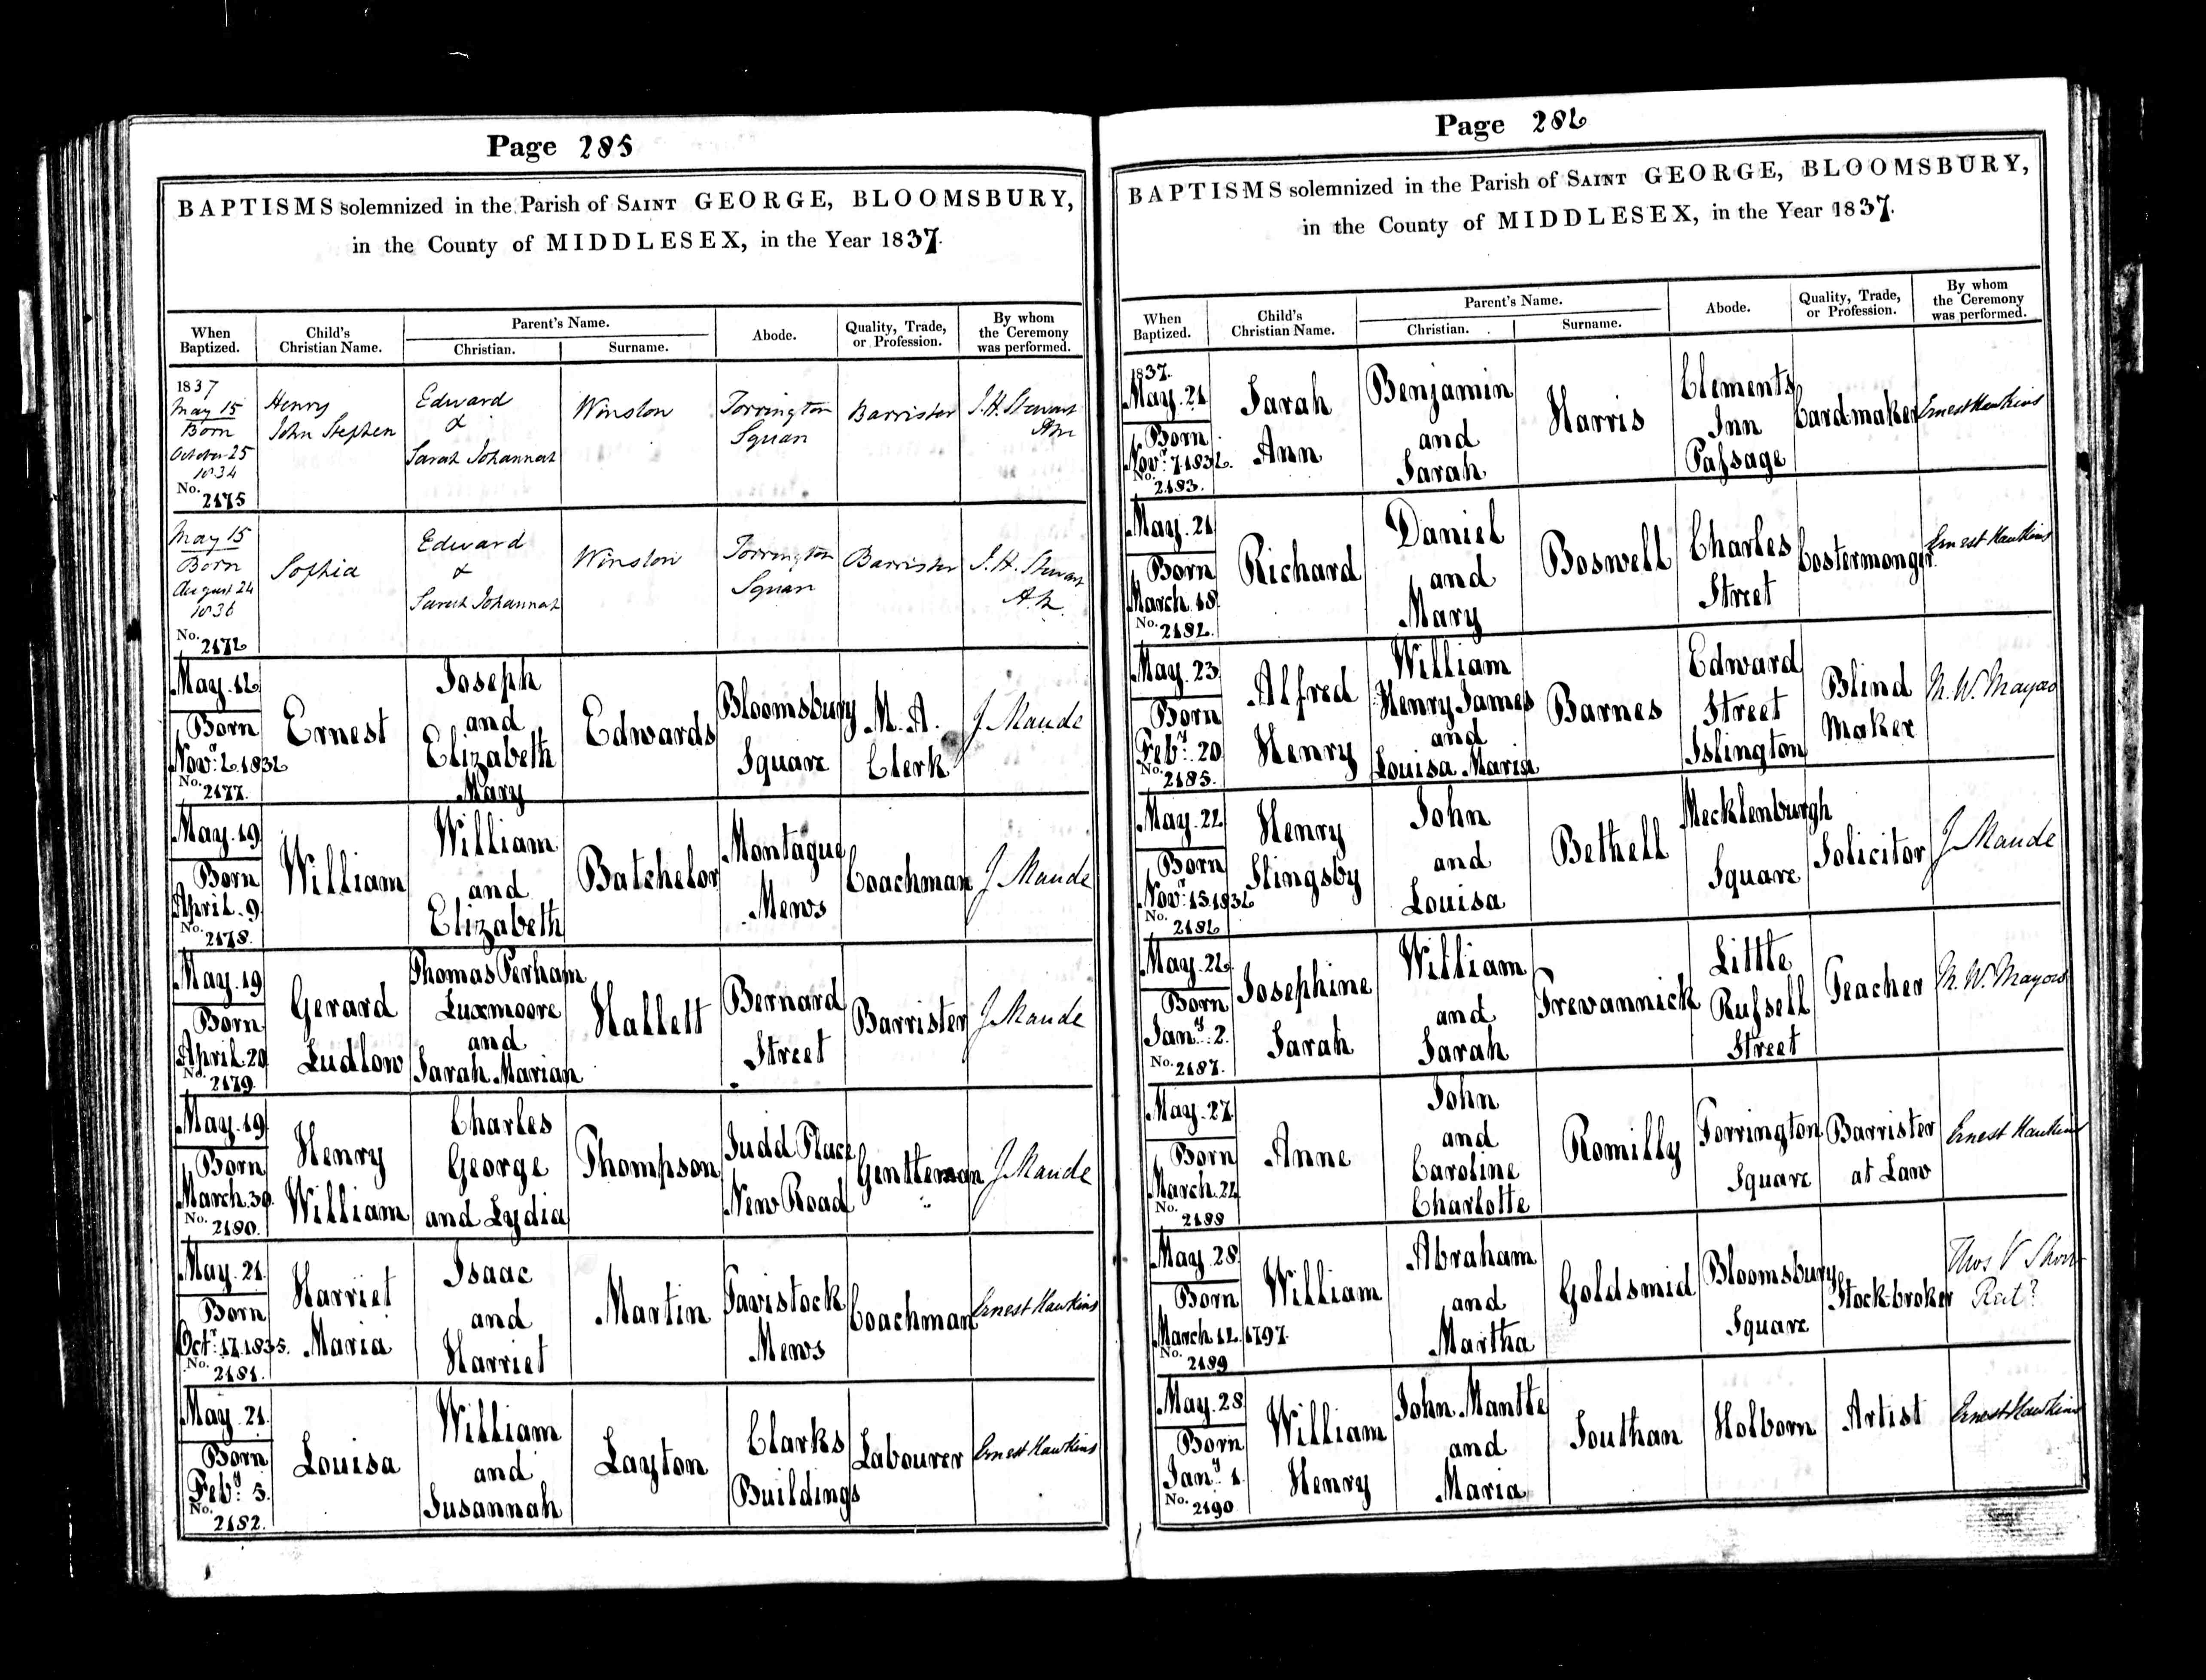 Page 285
BAPTISMS solemnized in the Parish of SAINT GEORGE, BLOOMSBURY,
in the County of MIDDLESEX, in the Year 1837.
When Baptized.
Child's Christian Name.
Parent's Name.
Christian.
Surname.
Abode.
Quality, Trade, or Profession.
By whom the Ceremony was performed.
1837
May 15
Born
October 25
1834
No. 2175
Henry
John Stephen
Edward
&
Sarah Johannah
Winston
Torrington
Square
Barrister
J. H. Stewart
May 15
Born
August 24
1836
No. 2176
Sophia
Edward
&
Sarah Johannah
Winston
Torrington
Square
Barrister
J. H. Stewart
May. 16
Born
Novr. 6. 1836
No. 2177.
Ernest
Joseph
and
Elizabeth
Mary
Edwards
Bloomsbury
Square
M. A.
Clerk
J Maude
May. 19
Born
April. 9
No. 2178.
William
William
and
Elizabeth
Batchelor
Montague
Mews
Coachman
J Maude
May. 19
Born
April. 20
No. 2179.
Gerard
Ludlow
Thomas Perham
Luxmoore
and
Sarah Marian
Hallett
Bernard
Street
Barrister
J Maude
May. 19
Born
March. 30.
No. 2180.
Henry
William
Charles
George
and Lydia
Thompson
Judd Place
New Road
Gentleman
J Maude
May. 21.
Born
Octr. 17. 1835.
No. 2181.
Harriet
Maria
Isaac
and
Harriet
Martin
Tavistock
Mews
Coachman
Ernest Hawkins
May. 21.
Born
Feby. 5.
No. 2182.
Louisa
William
and
Susannah
Layton
Clarks
Buildings
Labourer
Ernest Hawkins
Page 286
BAPTISMS solemnized in the Parish of SAINT GEORGE, BLOOMSBURY,
in the County of MIDDLESEX, in the Year 1837.
When Baptized.
Child's Christian Name.
Parent's Name.
Christian.
Surname.
Abode.
Quality, Trade, or Profession.
By whom the Ceremony was performed.
1837.
May. 21
Born
Novr. 7. 1836.
No. 2183.
Sarah
Ann
Benjamin
and
Sarah
Harris
Clements
Inn
Passage
Card-maker
Ernest Hawkins
May. 21
Born
March. 18
No. 2184.
Richard
Daniel
and
Mary
Boswell
Charles
Street
Costermonger
Ernest Hawkins
May. 23
Born
Feby. 20
No. 2185.
Alfred
Henry
William
Henry James
and
Louisa Maria
Barnes
Edward
Street
Islington
Blind
Maker
M. W. Mayow
May.
Born
Novr. 15. 1836
No. 2186
Henry
Slingsby
John
and
Louisa
Bethell
Mecklenburgh
Square
Solicitor
J Maude
May. 26
Born
Jany. 2.
No. 2187.
Josephine
Sarah
William
and
Sarah
Trewannick
Little
Russell
Street
Teacher
M. W. Mayow
May. 27
Born
March.
No. 2188
Anne
John
and
Caroline
Charlotte
Romilly
Torrington
Square
Barrister
at Law
Ernest Hawkins
May. 28.
Born
March 1797.
No. 2189
William
Abraham
and
Martha
Goldsmid
Bloomsbury
Square
Stock-broker
Thos V Short
May. 28
Born
Jany. 1.
No. 2190
William
Henry
John Mantle
and
Maria
Southan
Holborn
Artist
Ernest Hawkins